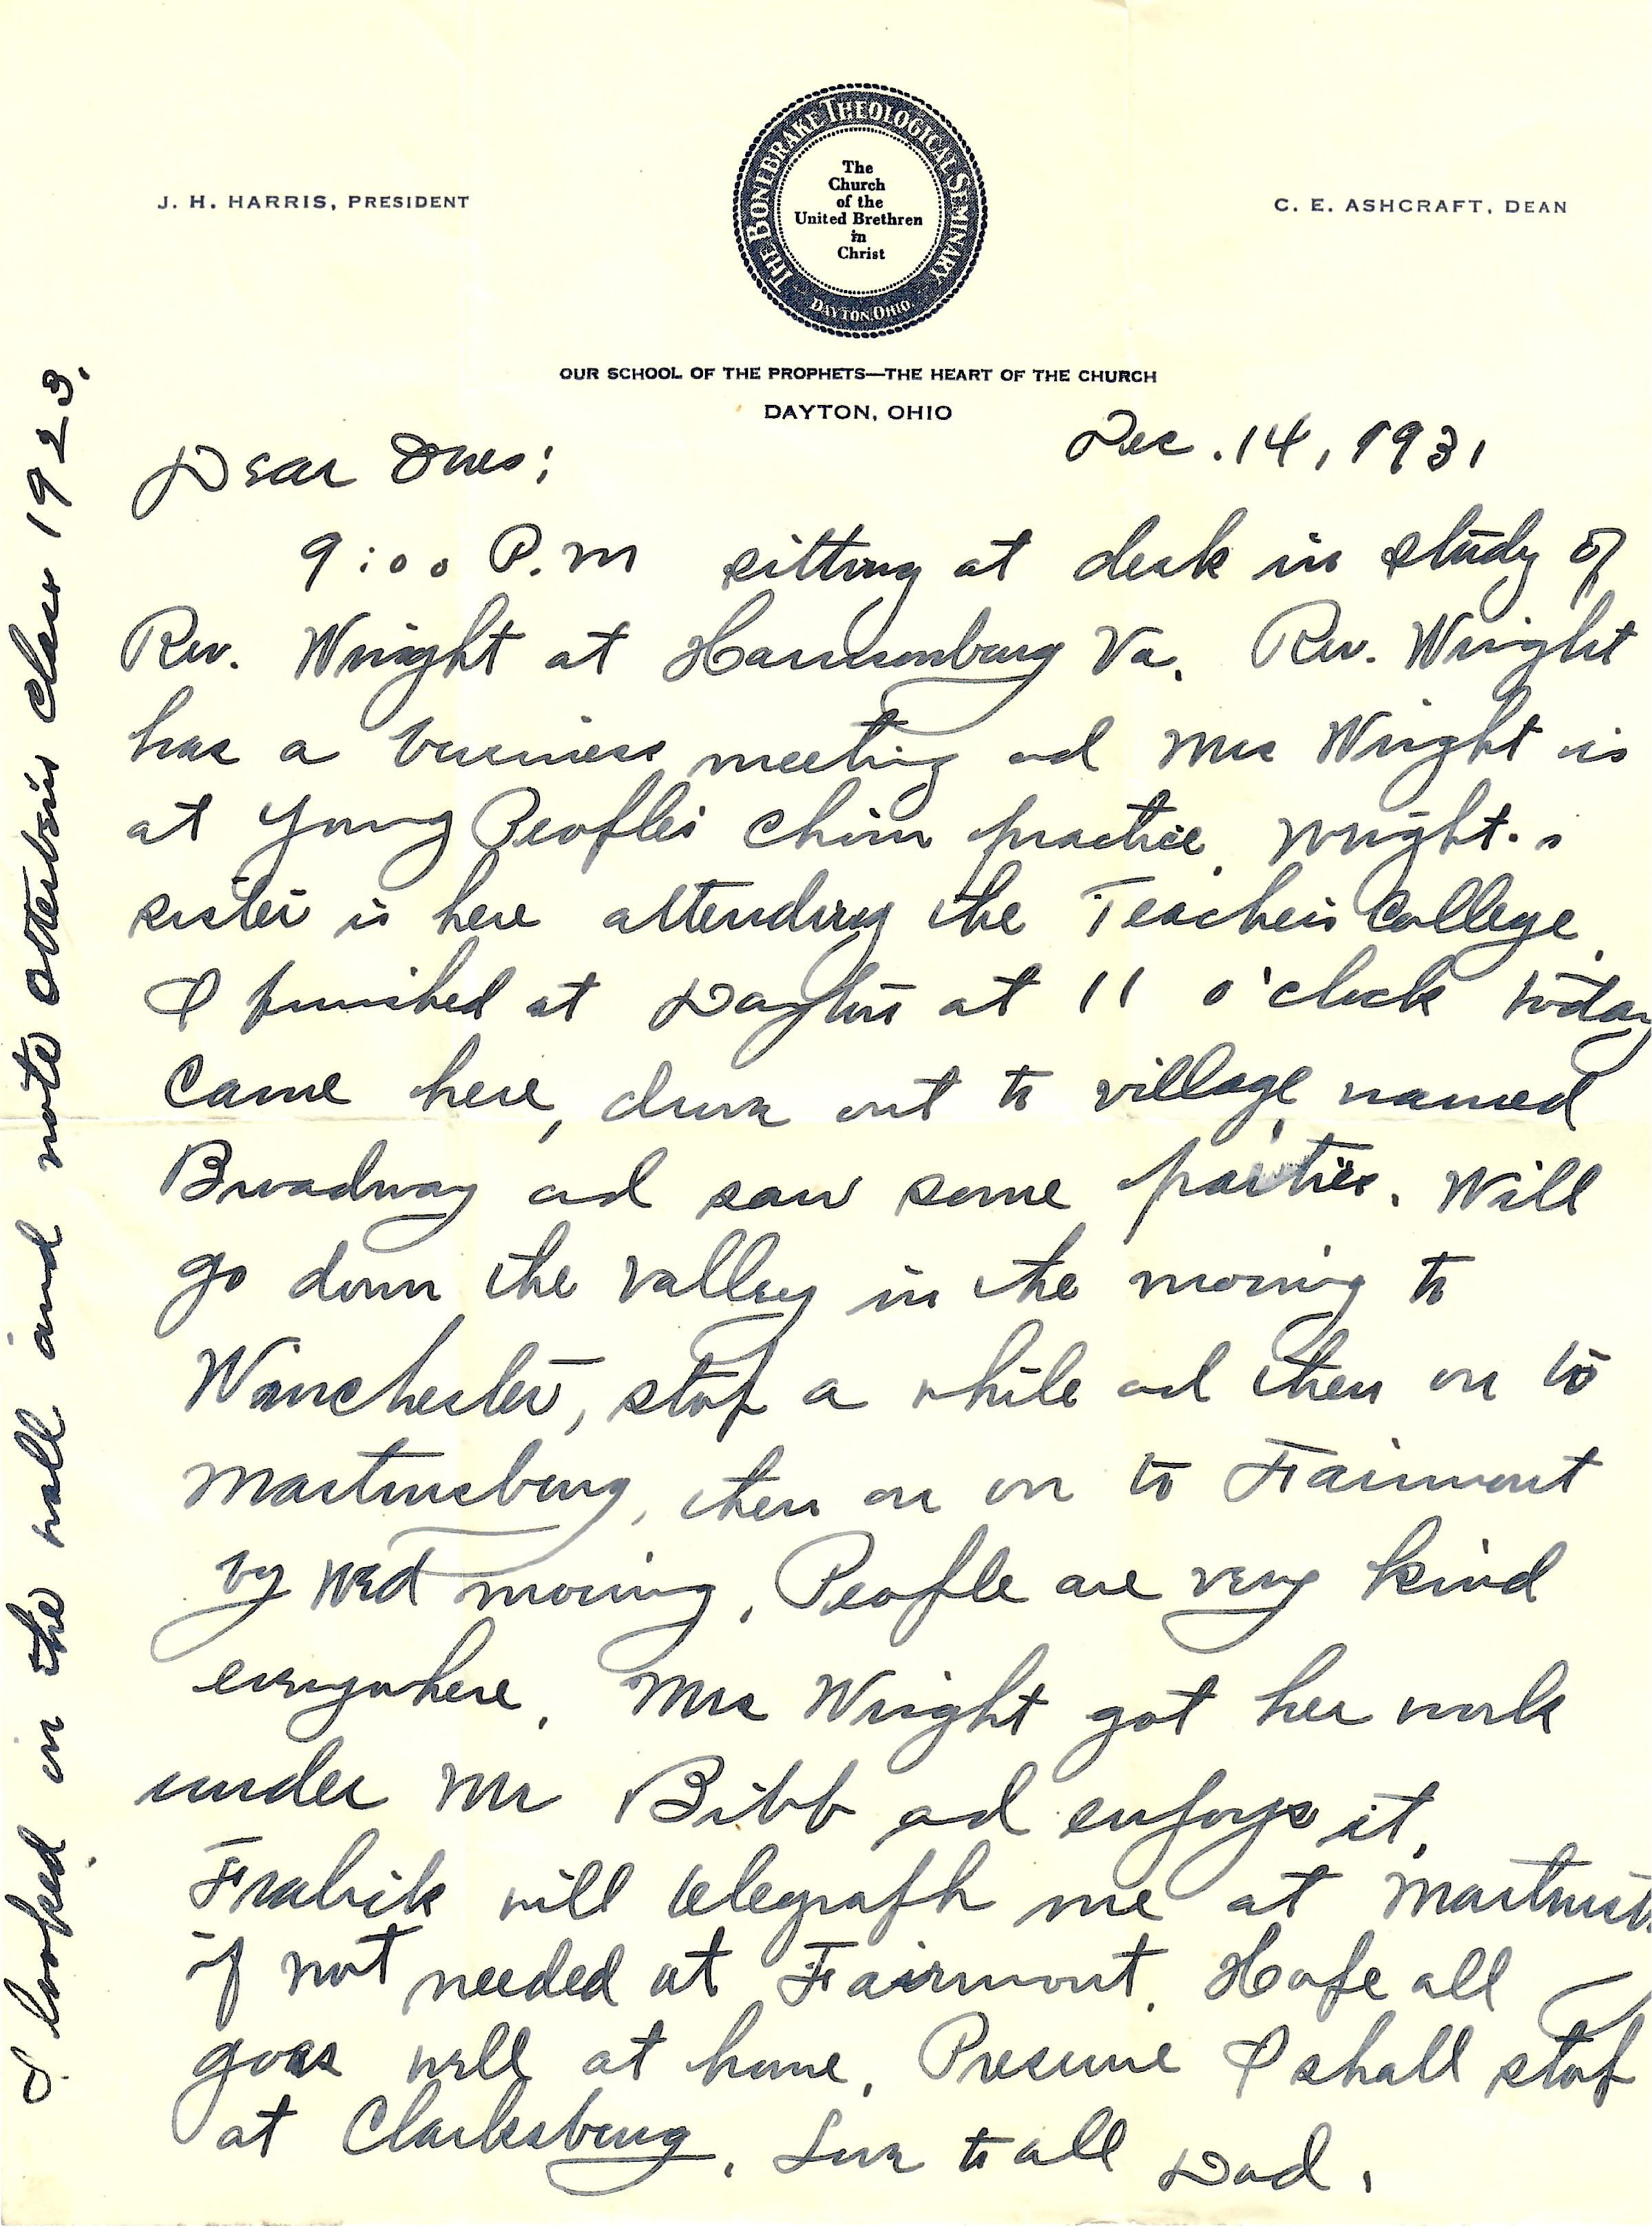 J. H. HARRIS, PRESIDENT
THE BONEBRAKE THEOLOGICAL SEMINARY
DAYTON, OHIO.
The
Church
of the
United Brethren
in
Christ
C. E. ASHCRAFT, DEAN
OUR SCHOOL OF THE PROPHETS—THE HEART OF THE CHURCH
DAYTON, OHIO
Dec. 14, 1931
Dear Ones:
9:00 P.M sitting at desk in study of
Rev. Wright at Harrisonburg Va. Rev. Wright
has a business meeting ad Mrs Wright is
at Young Peoples choir practice. Wright's
sister is here attending the Teachers College.
I finished at Dayton at 11 o'clock today
Came here, drove out to village named
Broadway ad saw some parties. Will
go down the valley in the morning to
Winchester, stop a while ad then on to
Martinsburg, then on on to Fairmont
by Wed morning. People are very kind
everywhere. Mrs Wright got her work
under Mr Bibb ad enjoys it.
will telegraph me at Martinsb
if not needed at Fairmont. Hope all
goes well at home. Presume I shall stop
at Clarksburg. Love to all Dad.
I looked in the hall and note Otterbein class 1923.